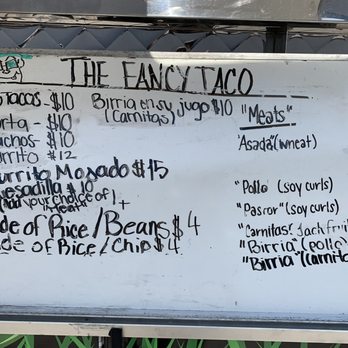 THE FANCY TACO
Tacos - $10
Torta - $10
Nachos - $10
Burrito $12
Burrito Mojado $15
Quesadilla $10
Add your choice of 1 "Meat" +
Side of Rice/Beans $4
Side of Rice/Chips $4
Birria en su jugo $10
(Carnitas)
"Meats"
"Asada" (wheat)
"Pollo" (soy curls)
"Pastor" (soy curls)
"Carnitas" Jack fruit
"Birria" (pollo)
"Birria" (carnitas